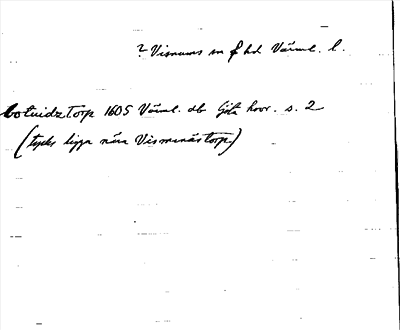 ? Visnums sn f hd Värml. l.
Botvidztorp 1605 Värml. db Göta hovr. s. 2
(tycks ligga nära Visnumstorp)